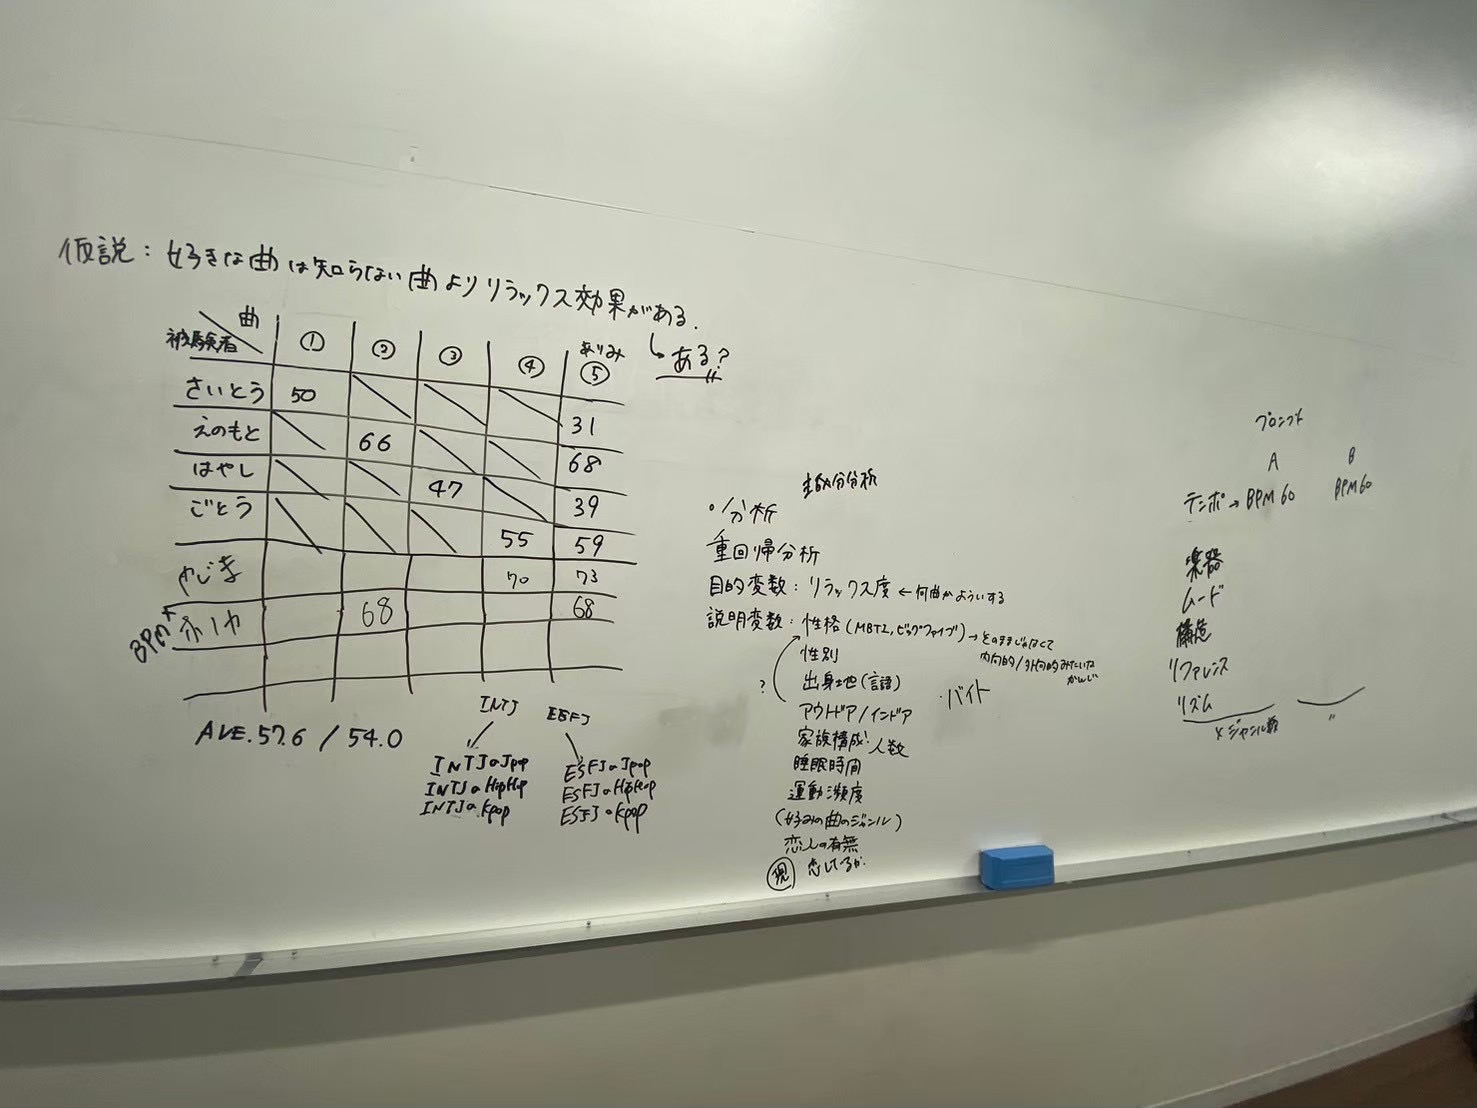 仮説：好きな曲は知らない曲よりリラックス効果がある.
↳ ある?
被験者 曲 ① ② ③ ④ ありみ ⑤
さいとう 50 31
えのもと 66 68
はやし 47 39
ごとう 55 59
やじま 70 73
BPM 68 68
AVE.57.6 / 54.0
INTJ ESFJ
INTJのJpop ESFJのJpop
INTJのHipHop ESFJのHipHop
INTJのKpop ESFJのKpop
主成分分析
・分析
重回帰分析
目的変数：リラックス度 ← 何曲かよういする
説明変数：性格(MBTI,ビッグファイブ) → そのままじゃなくて
内向的/外向的みたいな
かんじ
性別
? 出身地(言語)
アウトドア/インドア ・バイト
家族構成:人数
睡眠時間
運動頻度
(好みの曲のジャンル)
恋人の有無
現 恋してるか.
プロンプト
A B
テンポ → BPM 60 BPM 60
楽器
ムード
構造
リファレンス
リズム
×ジャンル数 〃